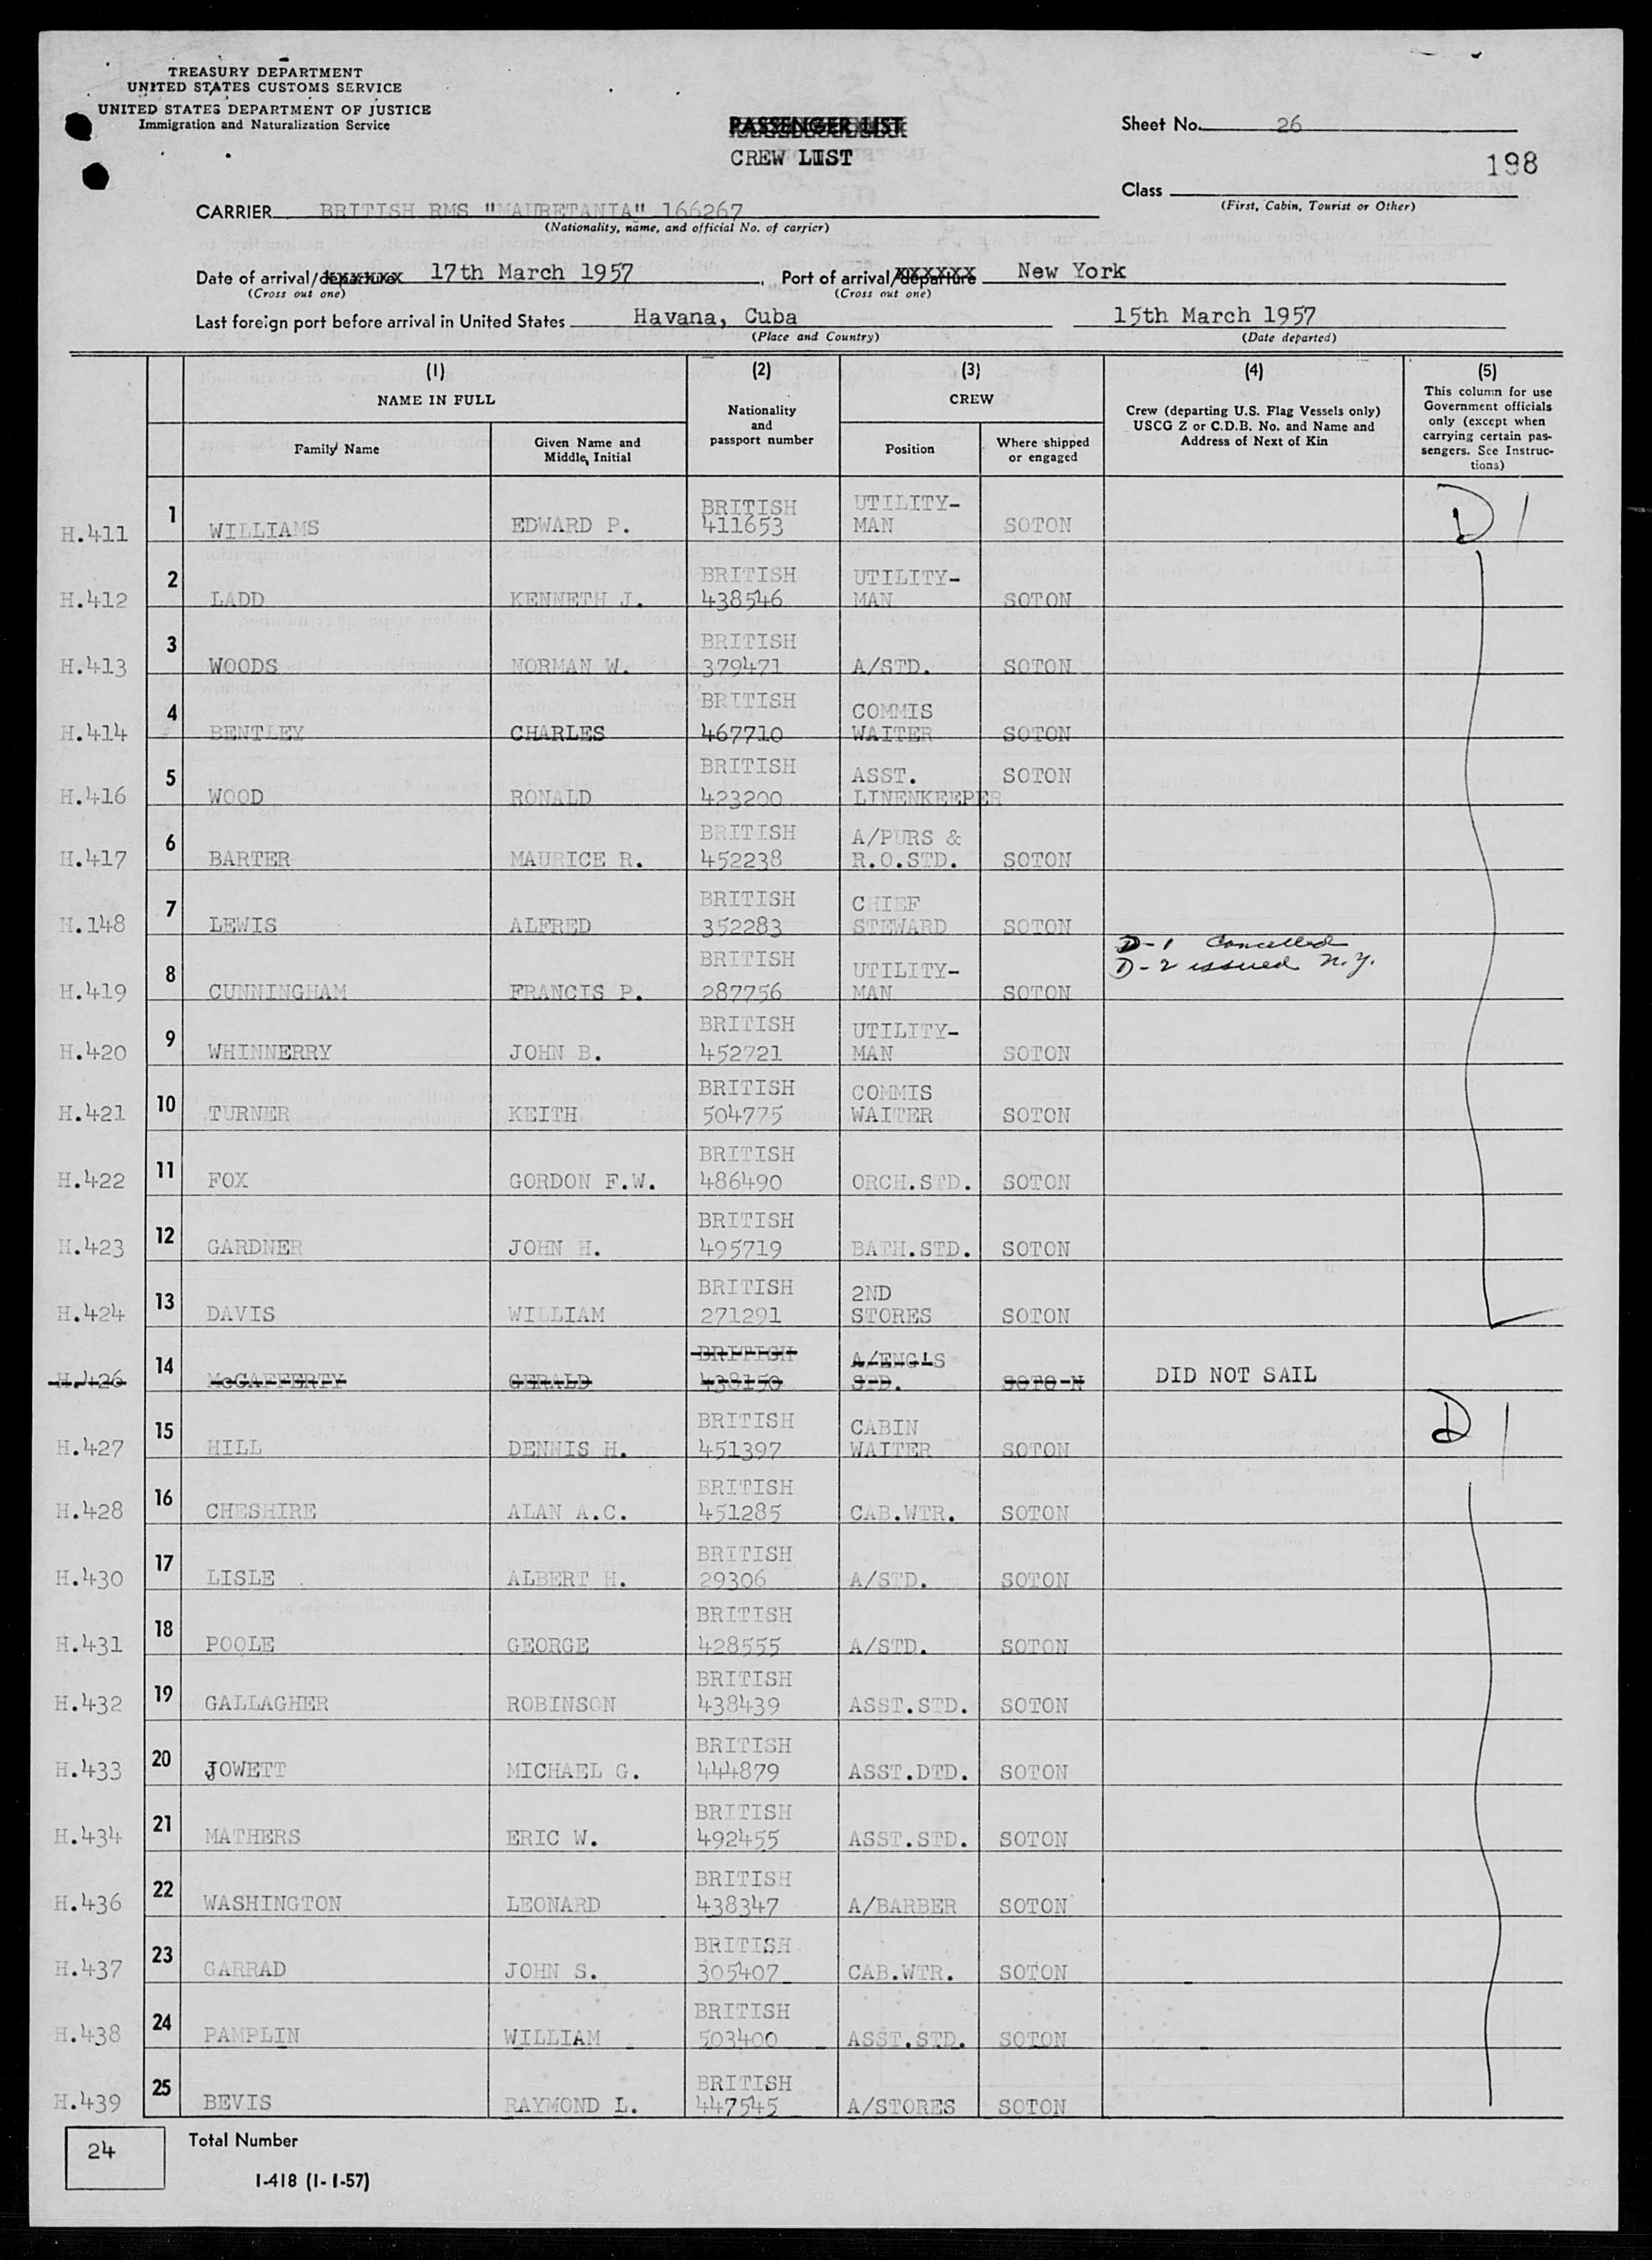 TREASURY DEPARTMENT
UNITED STATES CUSTOMS SERVICE
UNITED STATES DEPARTMENT OF JUSTICE
Immigration and Naturalization Service
PASSENGER LIST
CREW LIST
Sheet No. 26
198
Class
(First, Cabin, Tourist or Other)
CARRIER BRITISH RMS "MAURETANIA" 166267
(Nationality, name, and official No. of carrier)
Date of arrival/departure 17th March 1957, Port of arrival/departure New York
(Cross out one) (Cross out one)
Last foreign port before arrival in United States Havana, Cuba 15th March 1957
(Place and Country) (Date departed)
(1) (2) (3) (4) (5)
NAME IN FULL
Family Name
Given Name and Middle Initial
Nationality and passport number
CREW
Position
Where shipped or engaged
Crew (departing U.S. Flag Vessels only) USCG Z or C.D.B. No. and Name and Address of Next of Kin
This column for use Government officials only (except when carrying certain passengers. See Instructions)
H.411 1 WILLIAMS EDWARD P. BRITISH 411653 UTILITY-MAN SOTON D 1
H.412 2 LADD KENNETH J. BRITISH 438546 UTILITY-MAN SOTON
H.413 3 WOODS NORMAN W. BRITISH 379471 A/STD. SOTON
H.414 4 BENTLEY CHARLES BRITISH 467710 COMMIS WAITER SOTON
H.416 5 WOOD RONALD BRITISH 423200 ASST. LINENKEEPER SOTON
H.417 6 BARTER MAURICE R. BRITISH 452238 A/PURS & R.O.STD. SOTON
H.148 7 LEWIS ALFRED BRITISH 352283 CHIEF STEWARD SOTON
H.419 8 CUNNINGHAM FRANCIS P. BRITISH 287756 UTILITY-MAN SOTON D-1 Cancelled D-2 issued N.Y.
H.420 9 WHINNERRY JOHN B. BRITISH 452721 UTILITY-MAN SOTON
H.421 10 TURNER KEITH BRITISH 504775 COMMIS WAITER SOTON
H.422 11 FOX GORDON F.W. BRITISH 486490 ORCH.STD. SOTON
H.423 12 GARDNER JOHN H. BRITISH 495719 BATH.STD. SOTON
H.424 13 DAVIS WILLIAM BRITISH 271291 2ND STORES SOTON
H.426 14 McGAFFERTY GERALD BRITISH 438150 A/ENG'S STD. SOTO-N DID NOT SAIL
H.427 15 HILL DENNIS H. BRITISH 451397 CABIN WAITER SOTON D 1
H.428 16 CHESHIRE ALAN A.C. BRITISH 451285 CAB.WTR. SOTON
H.430 17 LISLE ALBERT H. BRITISH 29306 A/STD. SOTON
H.431 18 POOLE GEORGE BRITISH 428555 A/STD. SOTON
H.432 19 GALLAGHER ROBINSON BRITISH 438439 ASST.STD. SOTON
H.433 20 JOWETT MICHAEL G. BRITISH 444879 ASST.DTD. SOTON
H.434 21 MATHERS ERIC W. BRITISH 492455 ASST.STD. SOTON
H.436 22 WASHINGTON LEONARD BRITISH 438347 A/BARBER SOTON
H.437 23 GARRAD JOHN S. BRITISH 305407 CAB.WTR. SOTON
H.438 24 PAMPLIN WILLIAM BRITISH 503400 ASST.STD. SOTON
H.439 25 BEVIS RAYMOND L. BRITISH 447545 A/STORES SOTON
24 Total Number
I-418 (1-1-57)